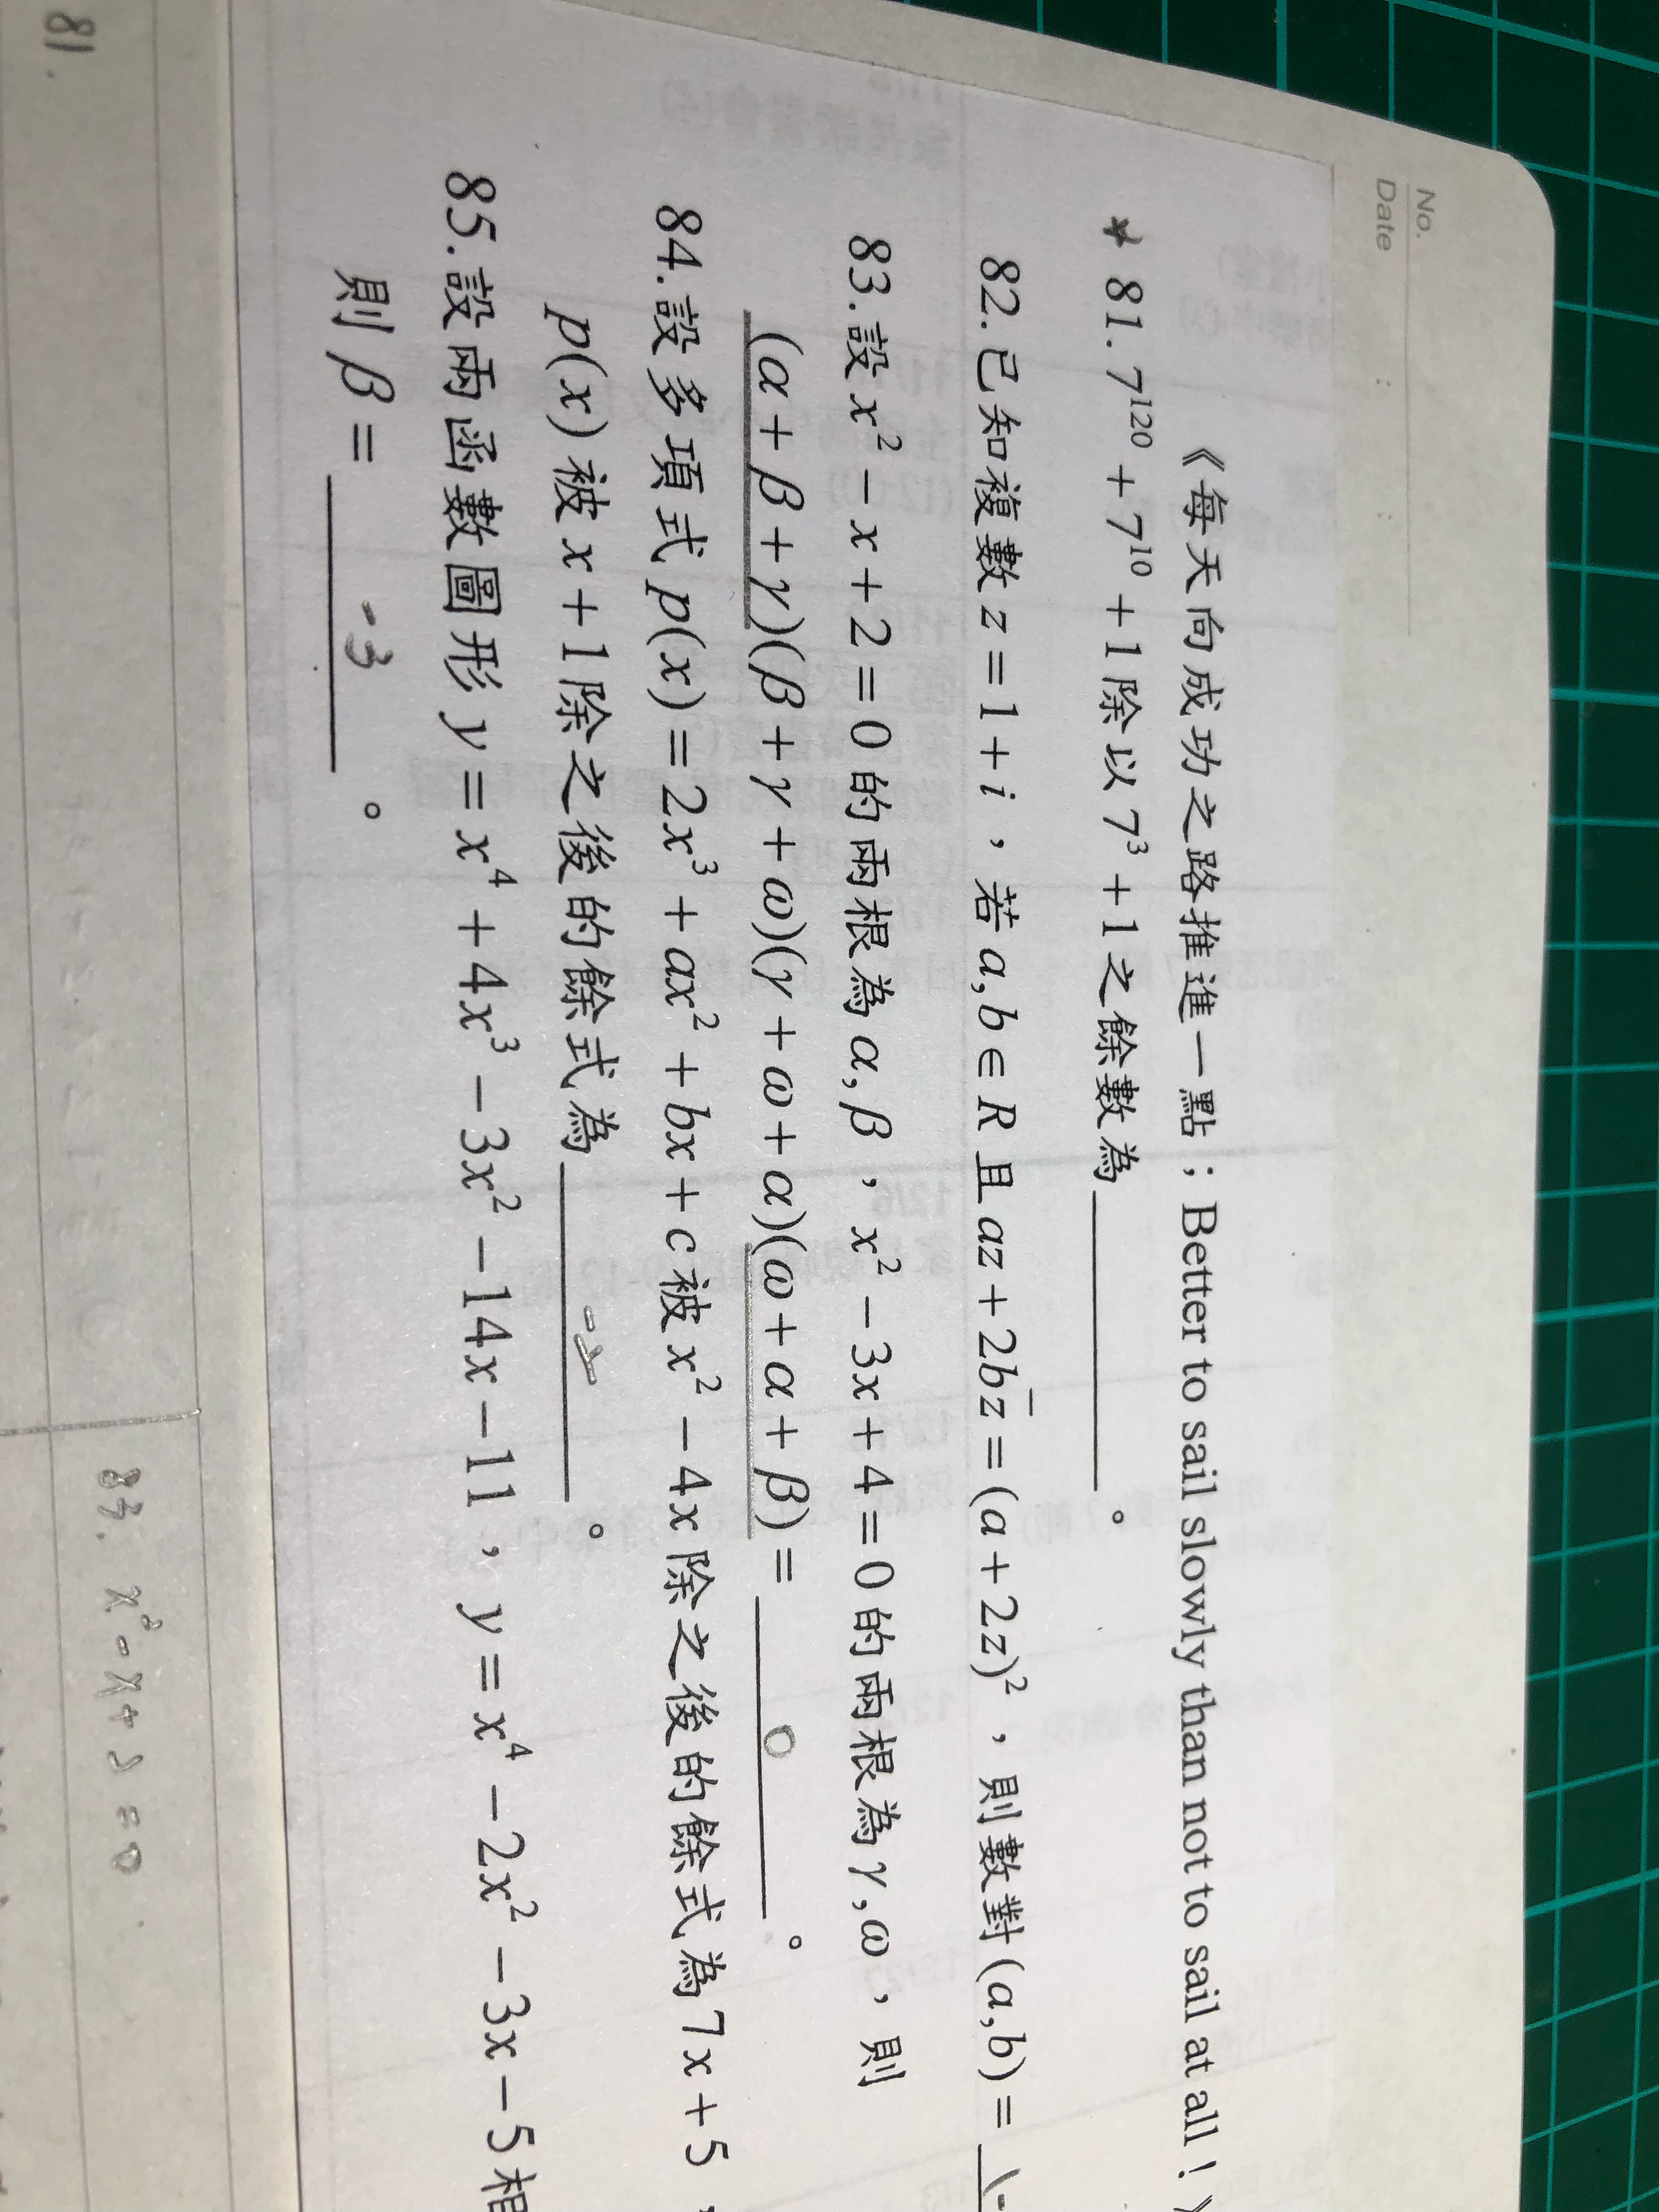 No.
Date : :
《每天向成功之路推進一點；Better to sail slowly than not to sail at all！》
* 81. 7¹²⁰ + 7¹⁰ + 1 除以 7³ + 1 之餘數為 ______ 。
82. 已知複數 z = 1 + i ，若 a, b ∈ R 且 az + 2bz̄ = (a + 2z)² ，則數對 (a, b) = (-
83. 設 x² − x + 2 = 0 的兩根為 α, β ，x² − 3x + 4 = 0 的兩根為 γ, ω ，則
(α + β + γ)(β + γ + ω)(γ + ω + α)(ω + α + β) = 0 。
84. 設多項式 p(x) = 2x³ + ax² + bx + c 被 x² − 4x 除之後的餘式為 7x + 5 ，
p(x) 被 x + 1 除之後的餘式為 -2 。
85. 設兩函數圖形 y = x⁴ + 4x³ − 3x² − 14x − 11 ，y = x⁴ − 2x² − 3x − 5 相
則 β = -3 。
81.
83. x² - x + 2 = 0